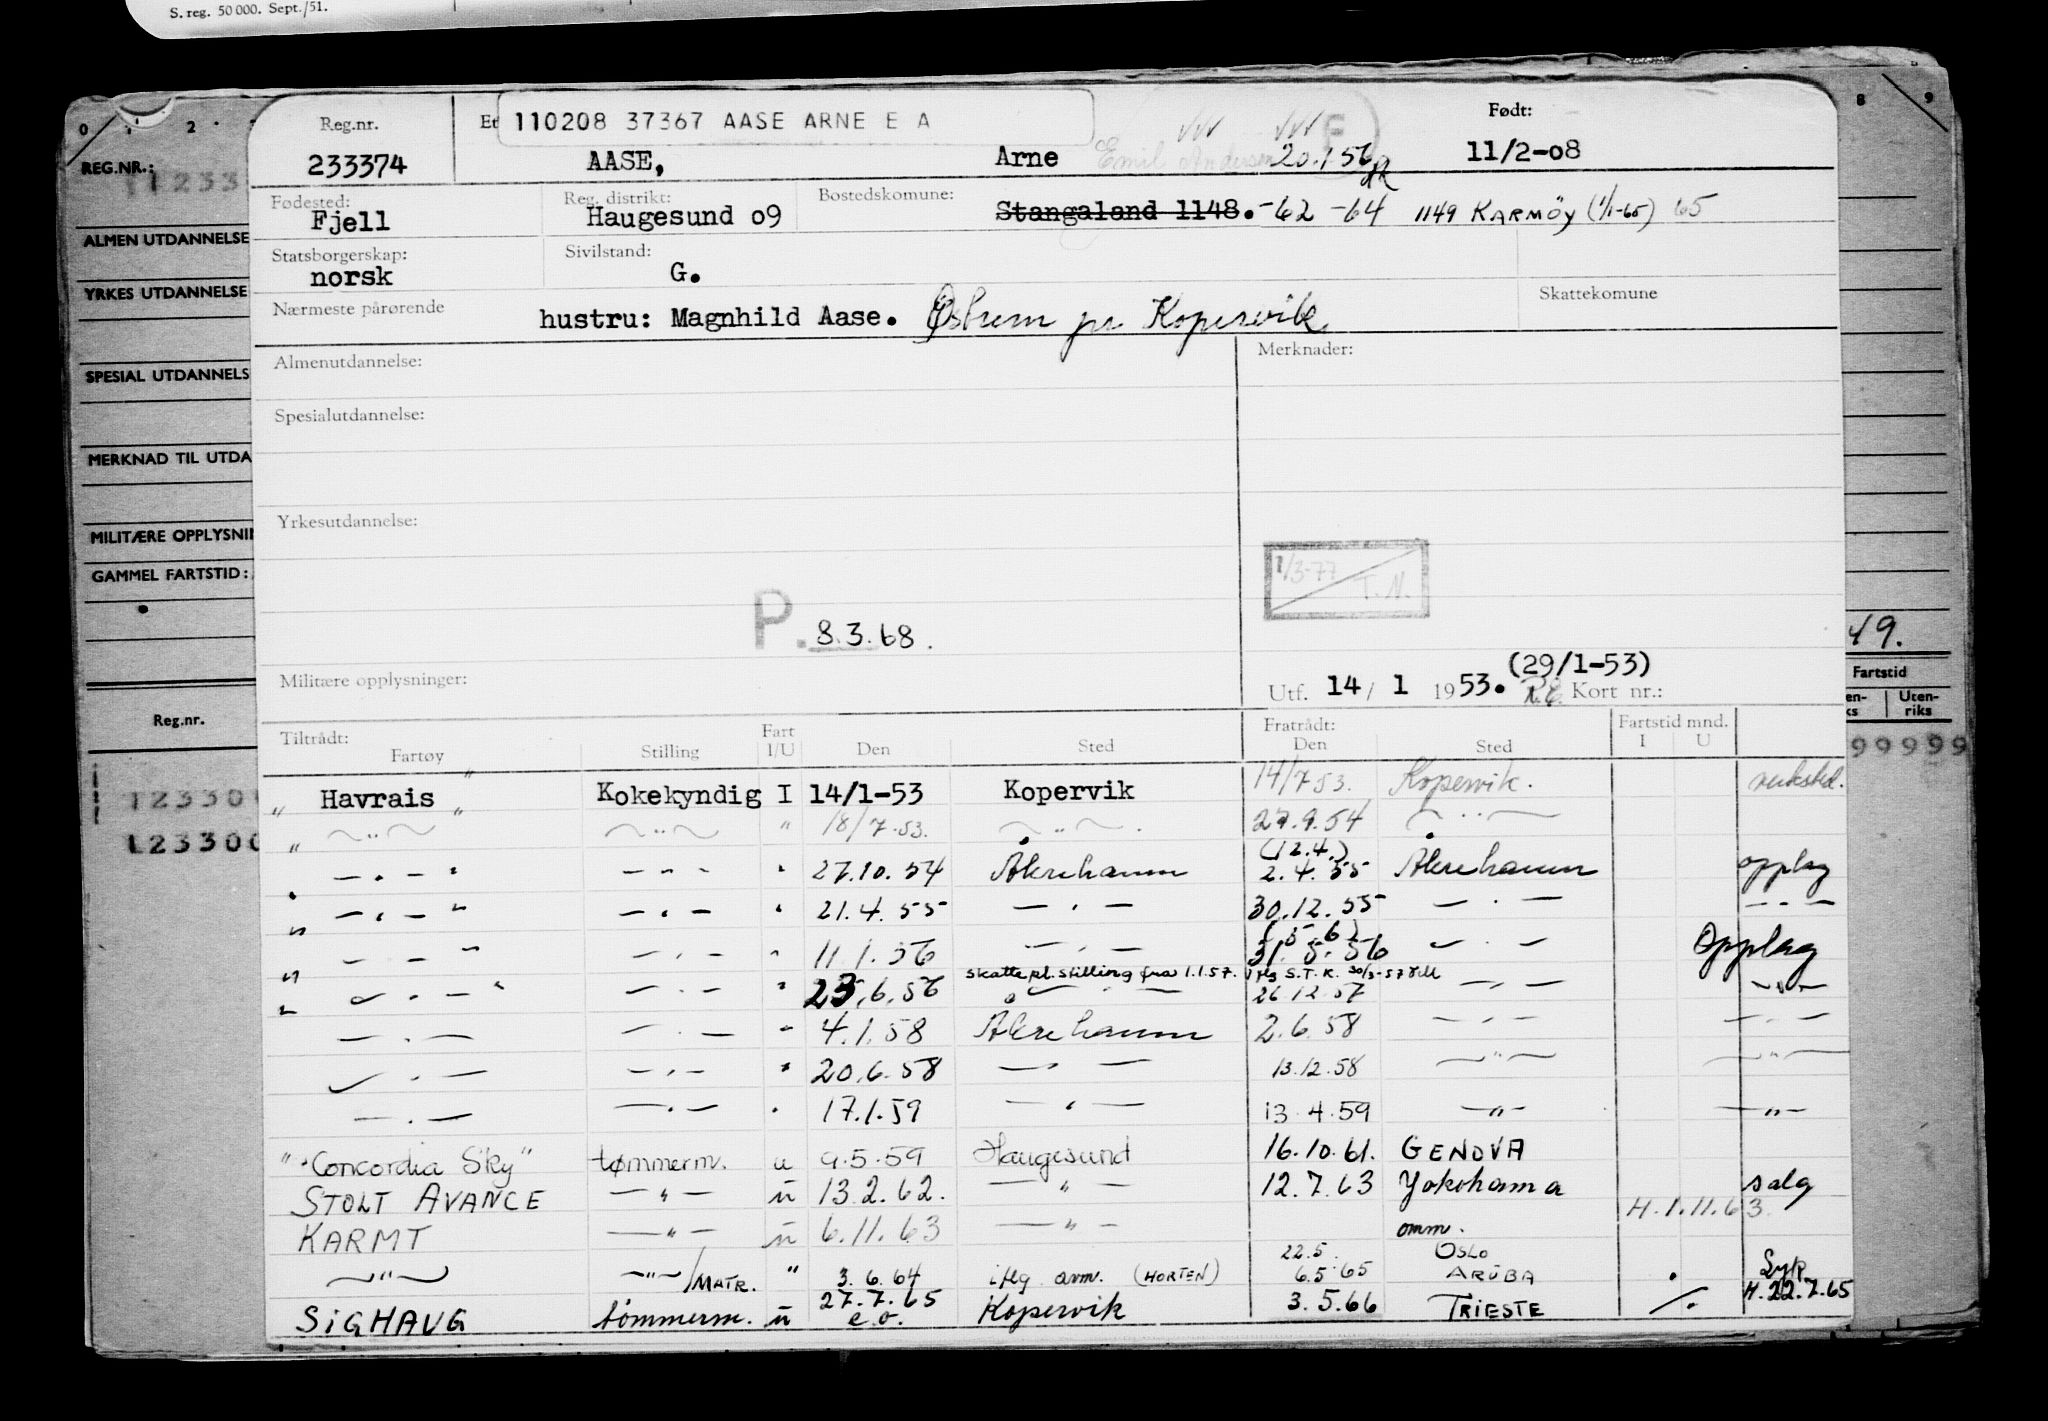 S. reg. 50 000. Sept./51.
0 1 2 8 9
Reg.nr. 110208 37367 AASE ARNE E A Født:
233374 AASE, Arne Emil Andersen 20.1.56 11/2-08
REG.NR.: 11233
Fødested: Reg. distrikt: Bostedskomune:
Fjell Haugesund 09 Stangaland 1148. -62 -64 1149 KARMÖY (1/1-65) 65
ALMEN UTDANNELSE
Statsborgerskap: Sivilstand:
norsk G.
YRKES UTDANNELSE
Nærmeste pårørende Skattekomune
hustru: Magnhild Aase. Østrem pr Kopervik
Almenutdannelse: Merknader:
SPESIAL UTDANNELS
Spesialutdannelse:
MERKNAD TIL UTDA
Yrkesutdannelse:
MILITÆRE OPPLYSNIN
1/3-77 T. N.
GAMMEL FARTSTID:
P. 8.3.68.
49.
(29/1-53)
Militære opplysninger: Utf. 14/ 1 1953. Kort nr.:
Fartstid
Reg.nr. Uten-riks
Tiltrådt: Fratrådt: Fartstid mnd.
Fartøy Stilling Fart I/U Den Sted Den Sted I U
99999
" Havrais " Kokekyndig I 14/1-53 Kopervik 14/7 53. Kopervik. verksted.
" — " — " — " — " 18/7.53. — " — . 27.9.54 — " —
(12.4.)
" — " — " — " — " 27.10.54 Åkrehamn 2.4.55 Åkrehamn opplag
" — " — " — " — " 21.4.55 — " — 30.12.55 — " — — " —
" — " — " — " — " 11.1.56 — " — 31.5.56 — " — Opplag
skattepl. stilling fra 1.1.57. iflg S.T.K. 30/3-57
" — " — " — " — " 23.6.56 — " — 26.12.57 — " — — " —
— " — — " — " 4.1.58 Åkrehamn 2.6.58 — " — — " —
— " — — " — " 20.6.58 — " — 13.12.58 — " — — " —
— " — — " — " 17.1.59 — " — 13.4.59 — " — — " —
" Concordia Sky" tømmerm. u 9.5.59 Haugesund 16.10.61. GENOVA
STOLT AVANCE — " — u 13.2.62. — " — 12.7.63 Yokohama salg
H.1.11.63.
KARMT — " — u 6.11.63 — " — omm.
22.5. OSLO
— " — — " — /MATR. " 3.6.64 iflg. avm. (HORTEN) 6.5.65 ARUBA Syk
H.22.7.65
SIGHAUG tømmerm. u 27.7.65 e.o. Kopervik 3.5.66 TRIESTE